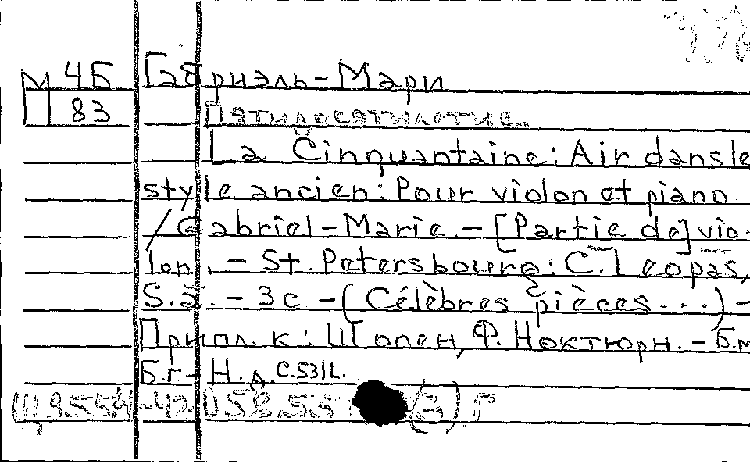 М 4Б Габриэль-Мари
П 83 Пятидесятилетие.
La Cinquantaine: Air dans le
style ancien: Pour violon et piano
/ Gabriel-Marie. - [Partie de] vio-
lon. - St. Petersbourg: C. Leopas,
S.a. - 3c - (Célèbres pièces...) -
Прил. к: Шопен, Ф. Ноктюрн. - Б.м
Б.г - Н.д. С.531L.